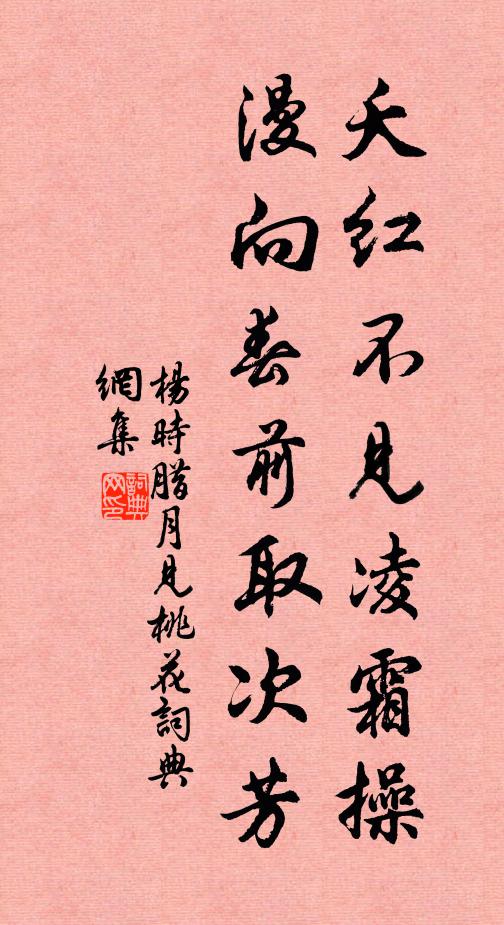 夭红不见凌霜操
漫向春前取次芳
杨時腊月见桃花詞典
網集
詞典
网印